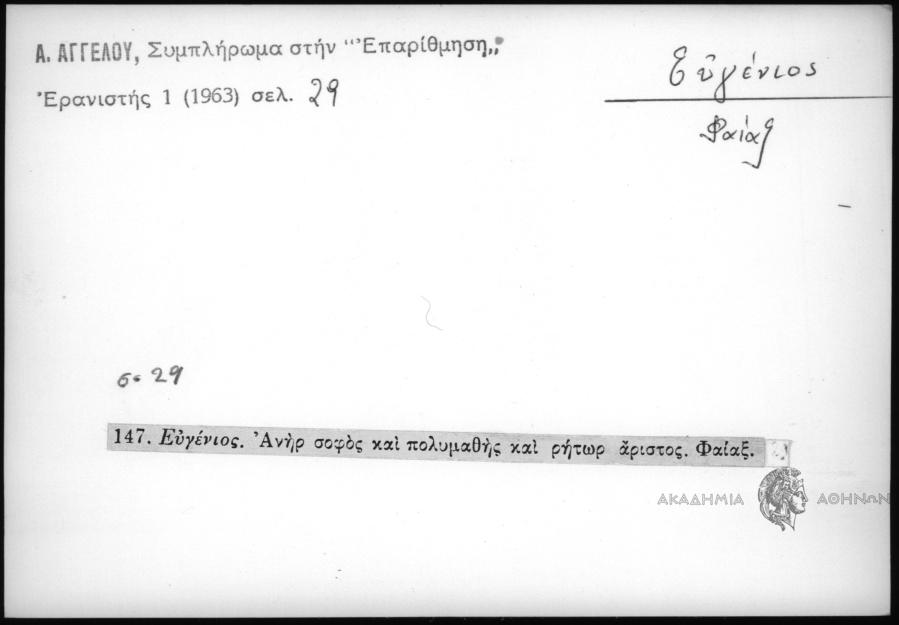 Α. ΑΓΓΕΛΟΥ, Συμπλήρωμα στήν "Ἐπαρίθμηση„
Ἐρανιστής 1 (1963) σελ. 29
Εὐγένιος
Φαίαξ
σ. 29
147. Εὐγένιος. Ἀνὴρ σοφὸς καὶ πολυμαθὴς καὶ ρήτωρ ἄριστος. Φαίαξ.
ΑΚΑΔΗΜΙΑ ΑΘΗΝΩΝ